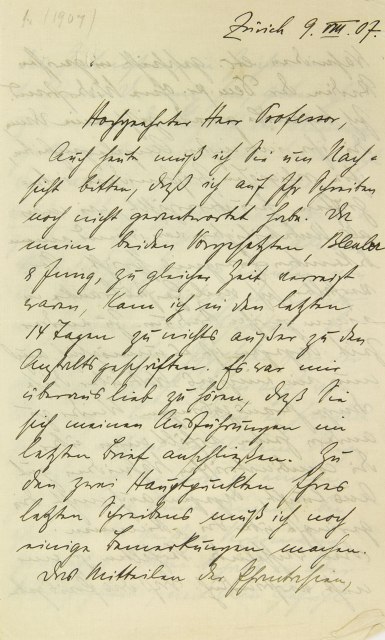 Zürich 9. VIII. 07.
Hochgeehrter Herr Professor,
Auch heute muß ich Sie um Nach-
sicht bitten, daß ich auf Ihr Schreiben
noch nicht geantwortet habe. Da
meine beiden Vorgesetzten, Bleuler
& Jung, zu gleicher Zeit verreist
waren, kam ich in den letzten
14 Tagen zu nichts außer zu den
Anstaltsgeschäften. Es war mir
überaus lieb zu hören, daß Sie
sich meinen Ausführungen im
letzten Brief anschließen. Zu
den zwei Hauptpunkten Ihres
letzten Schreibens muß ich noch
einige Bemerkungen machen.
Das Mitteilen der Phantasien,